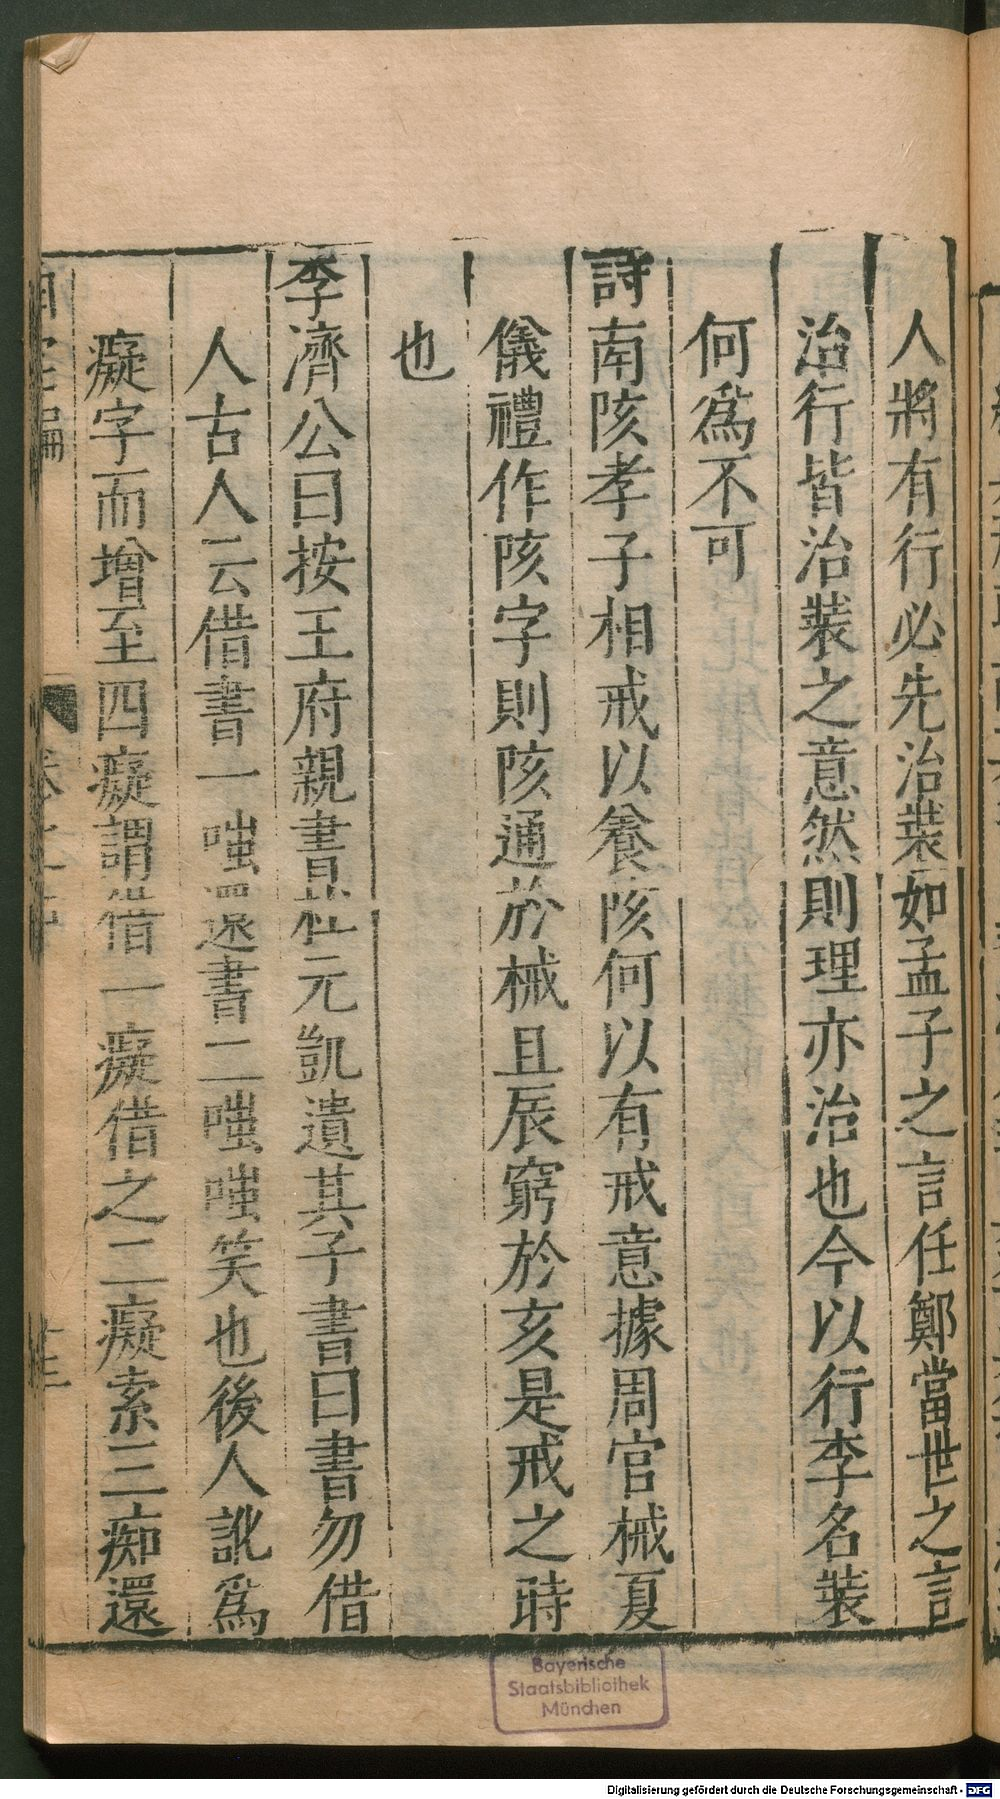 人將有行必先治裝如孟子之言任鄭當世之言
治行皆治裝之意然則理亦治也今以行李名裝
何爲不可
詩南陔孝子相戒以養陔何以有戒意據周官械夏
儀禮作陔字則陔通於械且辰窮於亥是戒之時
也
李濟公曰按王府親書杜元凱遺其子書曰書勿借
人古人云借書一嗤還書二嗤嗤笑也後人訛爲
癡字而增至四癡謂借一癡借之二癡索三痴還
卷之
十三
Bayerische
Staatsbibliothek
München
Digitalisierung gefördert durch die Deutsche Forschungsgemeinschaft - DFG